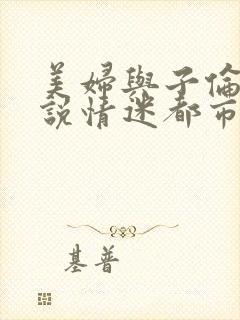 美婦與子倫
說情迷都市
基普